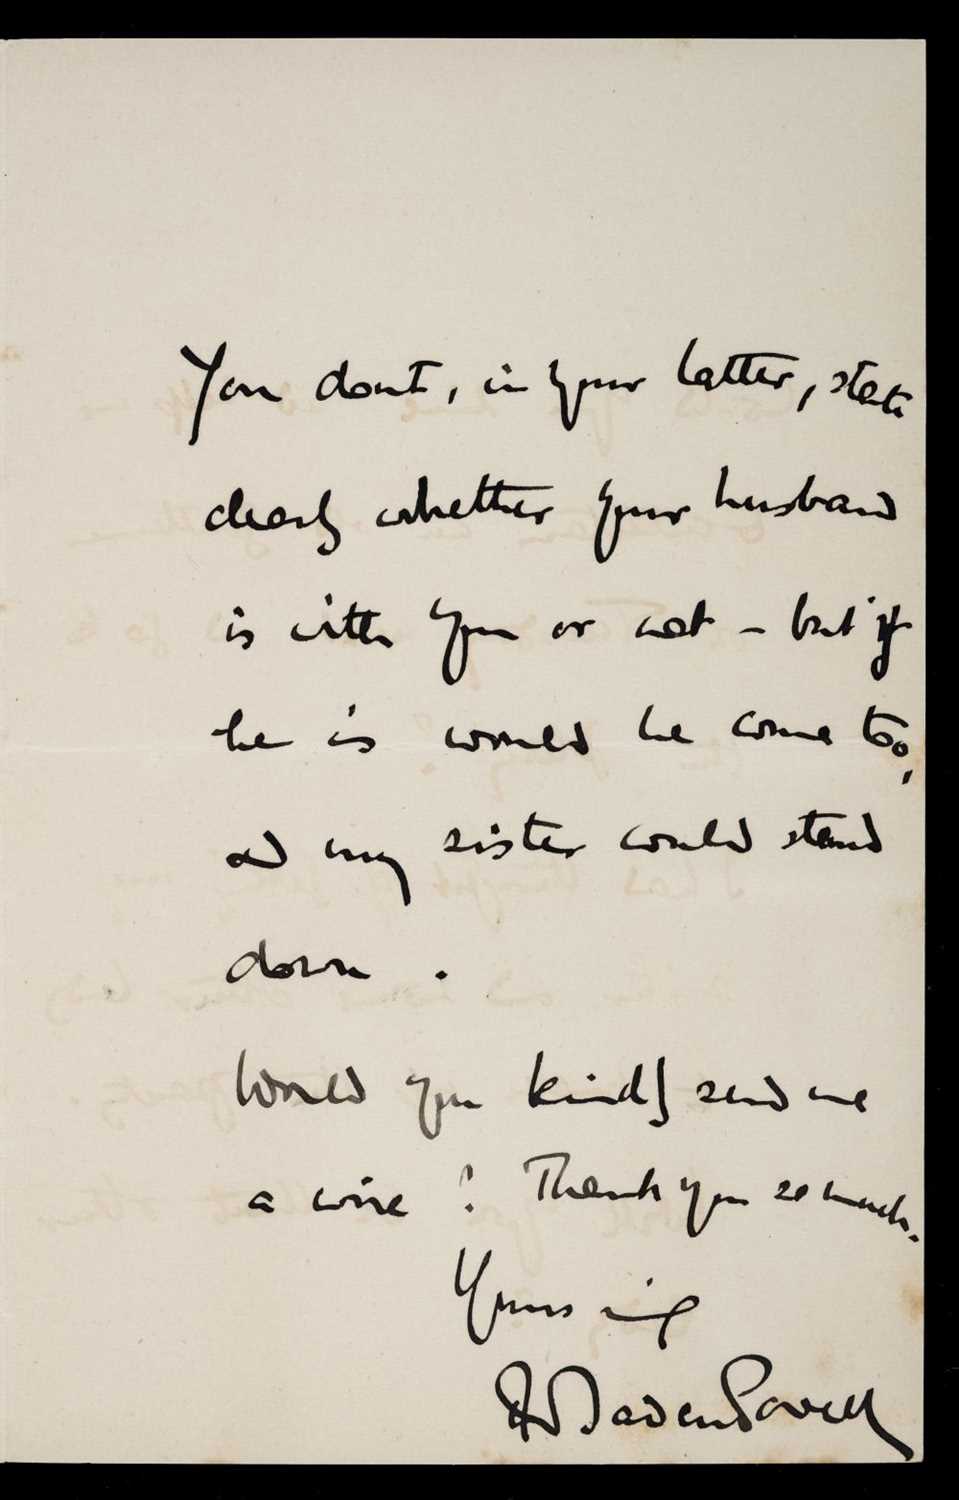 You dont, in your latter, state
clearly whether your husband
is with you or not – but if
he is would he come too,
and my sister could stand
down.
Would you kindly send me
a wire? Thank you so much.
Yours
R Baden Powell